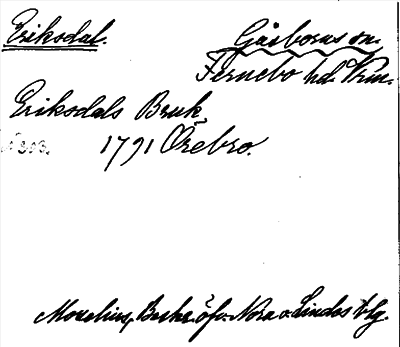 Eriksdal. Gåsborns sn.
Fernebo hd. Vrm.
Eriksdals Bruk.
1791 Örebro.
Morelius, Beskr. öfv. Nora o. Lindes blg.